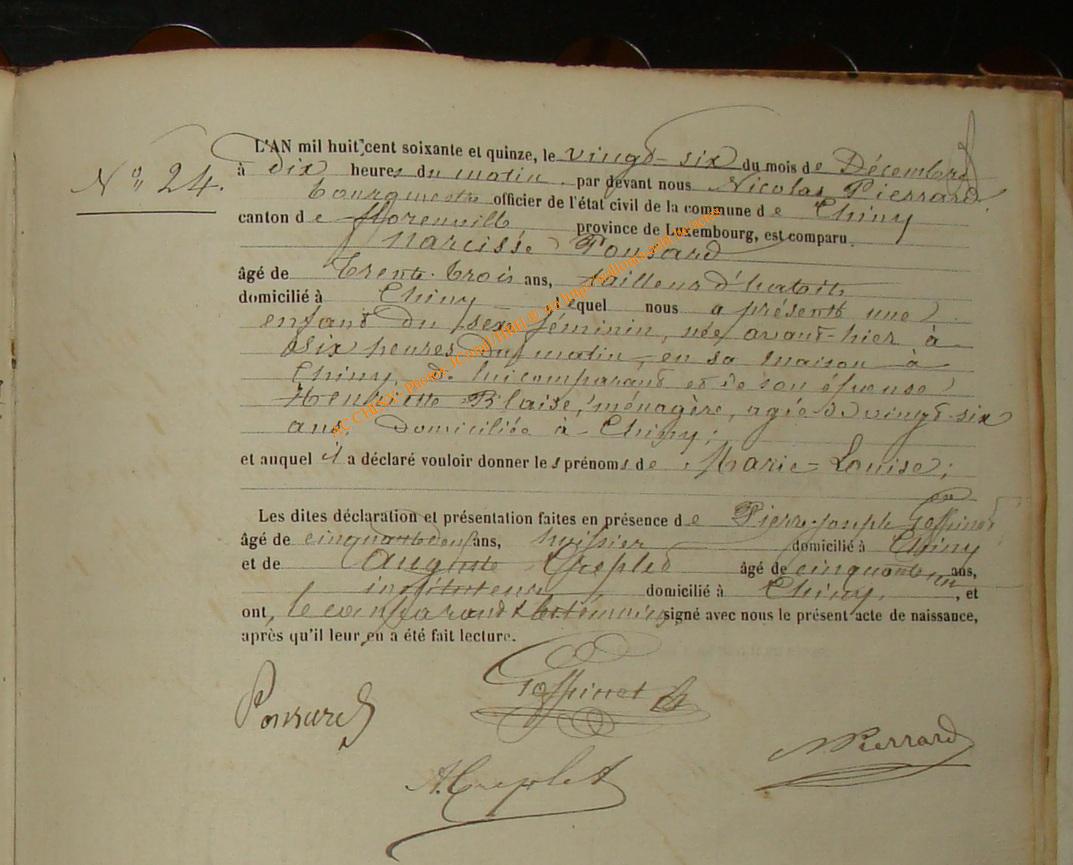 N° 24.
L'AN mil huit cent soixante et quinze, le vingt-six du mois de Décembre
à dix heures du matin par devant nous Nicolas Pierrard
bourgmestre officier de l'état civil de la commune de Chiny
canton de Florenville province de Luxembourg, est comparu
Narcisse Ponsard
âgé de trente-trois ans, tailleur d'habits
domicilié à Chiny lequel nous a présenté une
enfant du sexe féminin, née avant-hier à
six heures du matin, en sa maison à
Chiny de lui comparant et de son épouse
Henriette Blaise, ménagère, agée de vingt-six
ans, domiciliée à Chiny;
et auquel il a déclaré vouloir donner les prénoms de Marie-Louise;
Les dites déclaration et présentation faites en présence de Pierre Joseph Goffinet
âgé de cinquante deux ans, huissier domicilié à Chiny
et de Auguste Creplet âgé de cinquante un ans,
instituteur domicilié à Chiny, et
ont, le comparant & les témoins, signé avec nous le présent acte de naissance,
après qu'il leur en a été fait lecture.
Ponsard
Goffinet
NPierrard
A. Creplet